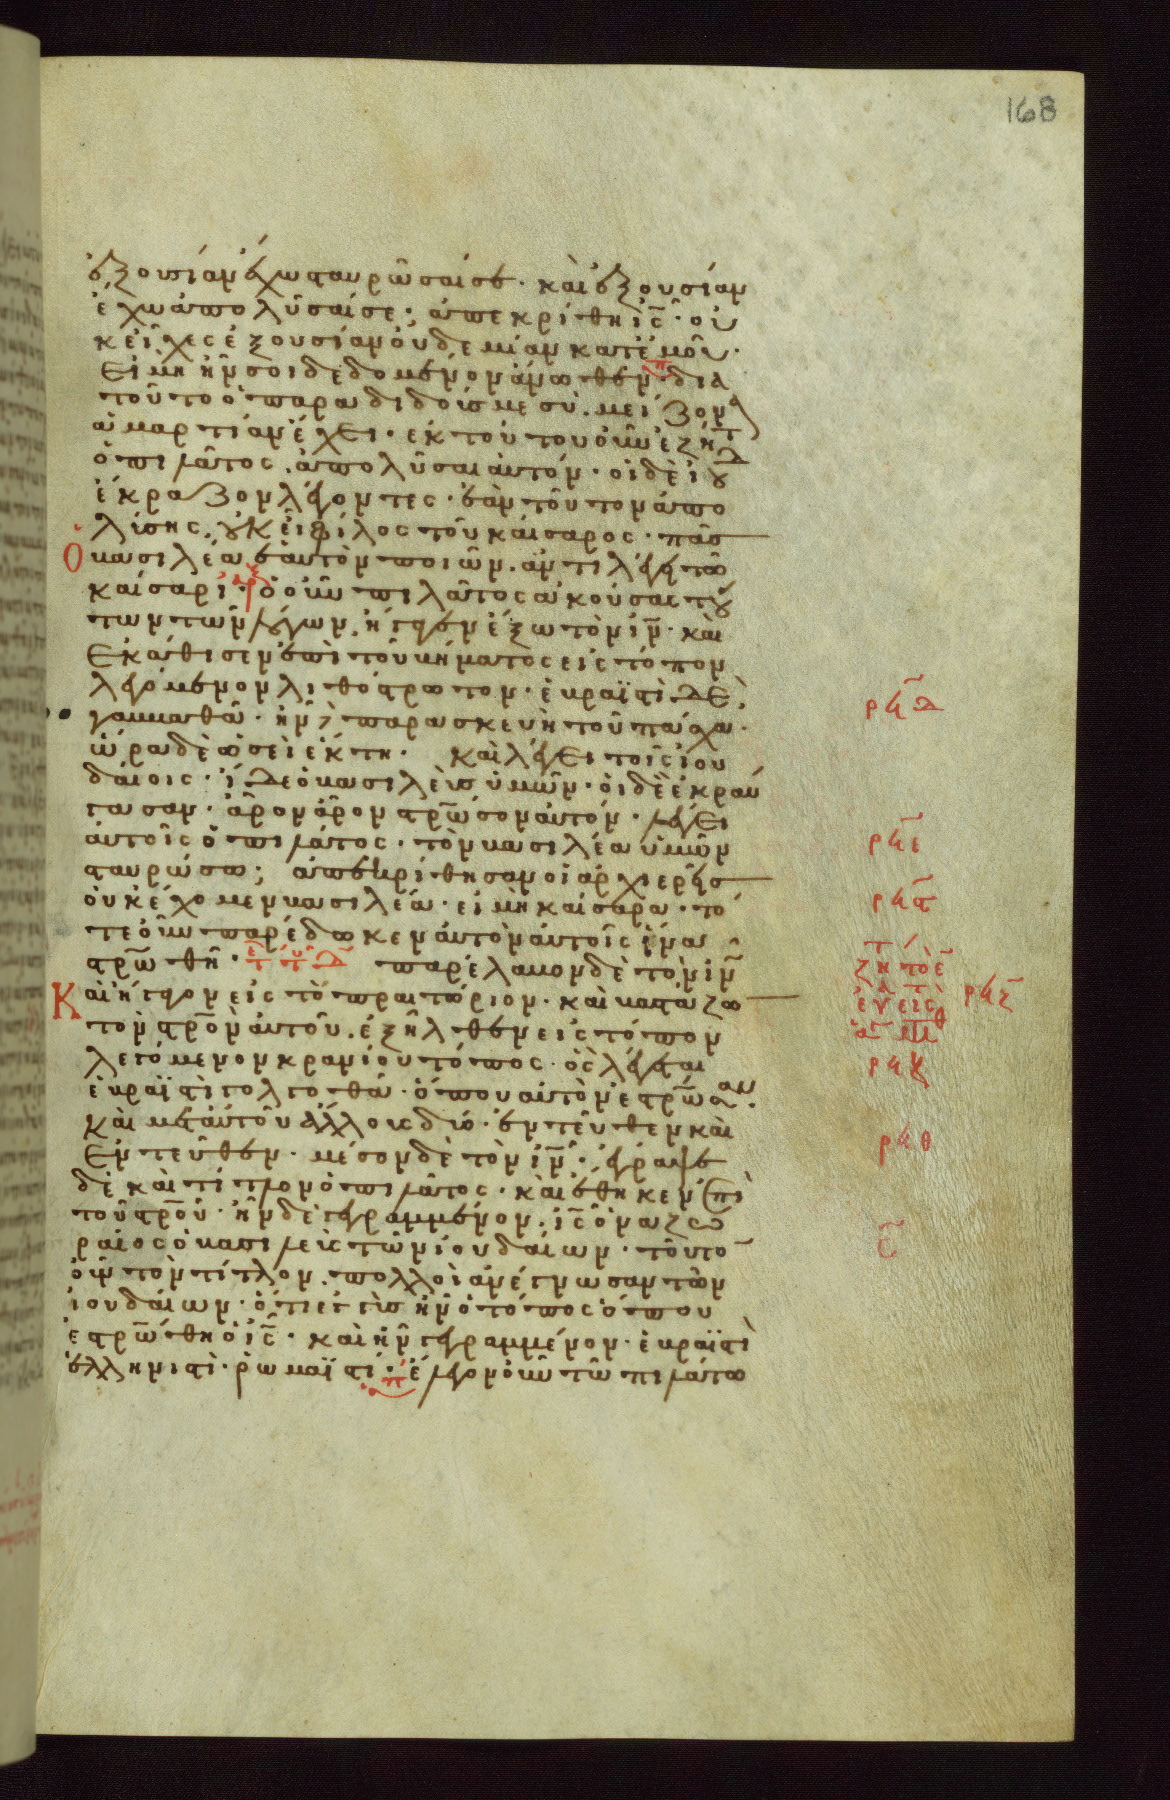 168
ἐξουσίαν ἔχω σταυρῶσαί σε· καὶ ἐξουσίαν
ἔχω ἀπολῦσαί σε; ἀπεκρίθη ἰς̅· οὐ
κεῖχες ἐξουσίαν οὐδεμίαν κατ ἐμοῦ·
Εἰ μὴ ἦν σοι δεδομένον ἄνωθεν· δια
τοῦτο ὁ παραδιδούς με σὺ. μείζονα
ἁμαρτίαν ἔχει· ἐκ τούτου οὖν ἐζητ
ὁ πιλᾶτος. ἀπολῦσαι αὐτόν· οἱ δὲ ἰουδ
ἔκραζον λέγοντες· ἐὰν τοῦτον ἀπο
λύσης. οὐκ εἶ φίλος τοῦ καίσαρος· πᾶσ
Ὁ βασιλέα ἑαυτὸν ποιῶν. ἀντιλέγει τῶ
καίσαρι· ὁ οὖν πιλᾶτος ἀκούσας τού
των τῶν λόγων. ἤγαγεν ἔξω τὸν ἰν̅· καὶ
Ἐκάθισεν ἐπὶ τοῦ βήματος εἰς τόπον
λεγόμενον λιθόστρωτον· ἑβραϊστὶ δὲ
γαββαθᾶ· ἦν δὲ παρασκευὴ τοῦ πάσχα·
ὥρα δὲ ὡσεὶ ἕκτη· καὶ λέγει τοῖς ἰου
δαίοις· ἴδε ὁ βασιλεὺς ὑμῶν· οἱ δὲ ἐκραύ
γασαν· ἆρον ἆρον στρω̅σον αὐτόν· λέγει
αὐτοῖς ὁ πιλάτος· τὸν βασιλέα ὑμῶν
σταυρώσω; ἀπεκρίθησαν οἱ ἀρχιερεῖς
οὐκ ἔχομεν βασιλέα· εἰ μὴ καίσαρα· τό
τε οὖν παρέδωκεν αὐτὸν αὐτοῖς ἵνα
στρω̅θῆ· παρέλαβον δὲ τὸν ἰν̅
Καὶ ἤγαγον εἰς τὸ πραιτώριον· καὶ βαστάζω
τὸν στρο̅ν αὐτοῦ. ἐξῆλθεν εἰς τόπον
λεγόμενον κρανίου τόπος· ὃς λέγεται
ἑβραϊστὶ γολγοθᾶ· ὅπου αὐτὸν ἐστρω̅σαν·
καὶ μετ αὐτοῦ ἄλλους δύο· ἐντεῦθεν καὶ
Ἐντεῦθεν· μέσον δὲ τὸν ἰν̅· ἔγραψε
δὲ καὶ τίτλον ὁ πιλᾶτος· καὶ ἔθηκεν ἐπὶ
τοῦ στρο̅ῦ· ἦν δὲ γεγραμμένον· ἰς̅ ὁ ναζω
ραῖος ὁ βασιλεὺς τῶν ἰουδαίων· τοῦτο
οὖν τὸν τίτλον. πολλοὶ ἀνέγνωσαν τῶν
ἰουδαίων· ὅτι ἐγγὺς ἦν ὁ τόπος ὅπου
ἐστρω̅θη ὁ ἰς̅· καὶ ἦν γεγραμμένον· ἑβραϊστὶ
ἑλληνιστὶ· ῥωμαϊστί· ἔλεγον οὖν τῶ πιλάτω